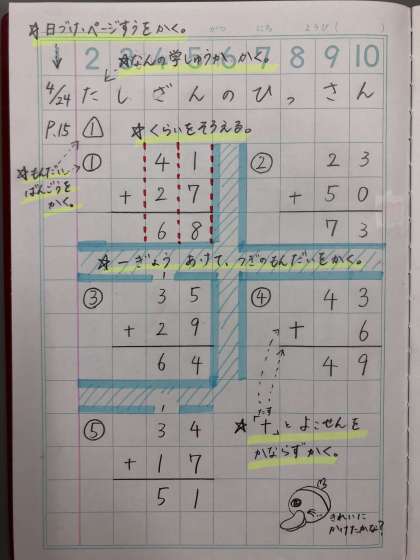 ☆日づけ・ページすうをかく。
がつ にち ようび( )
2 3 4 5 6 7 8 9 10
☆なんの学しゅうか、かく。
4/24 たしざんのひっさん
P.15 △1 ☆くらいをそろえる。
☆もんだいばんごうをかく。
① 41
+ 27
68
② 23
+ 50
73
☆一ぎょう あけて、つぎのもんだいをかく。
1
③ 35
+ 29
64
④ 43
+ 6
49
たす
☆「+」とよこせんを
かならずかく。
1
⑤ 34
+ 17
51
きれいに
かけたかな?